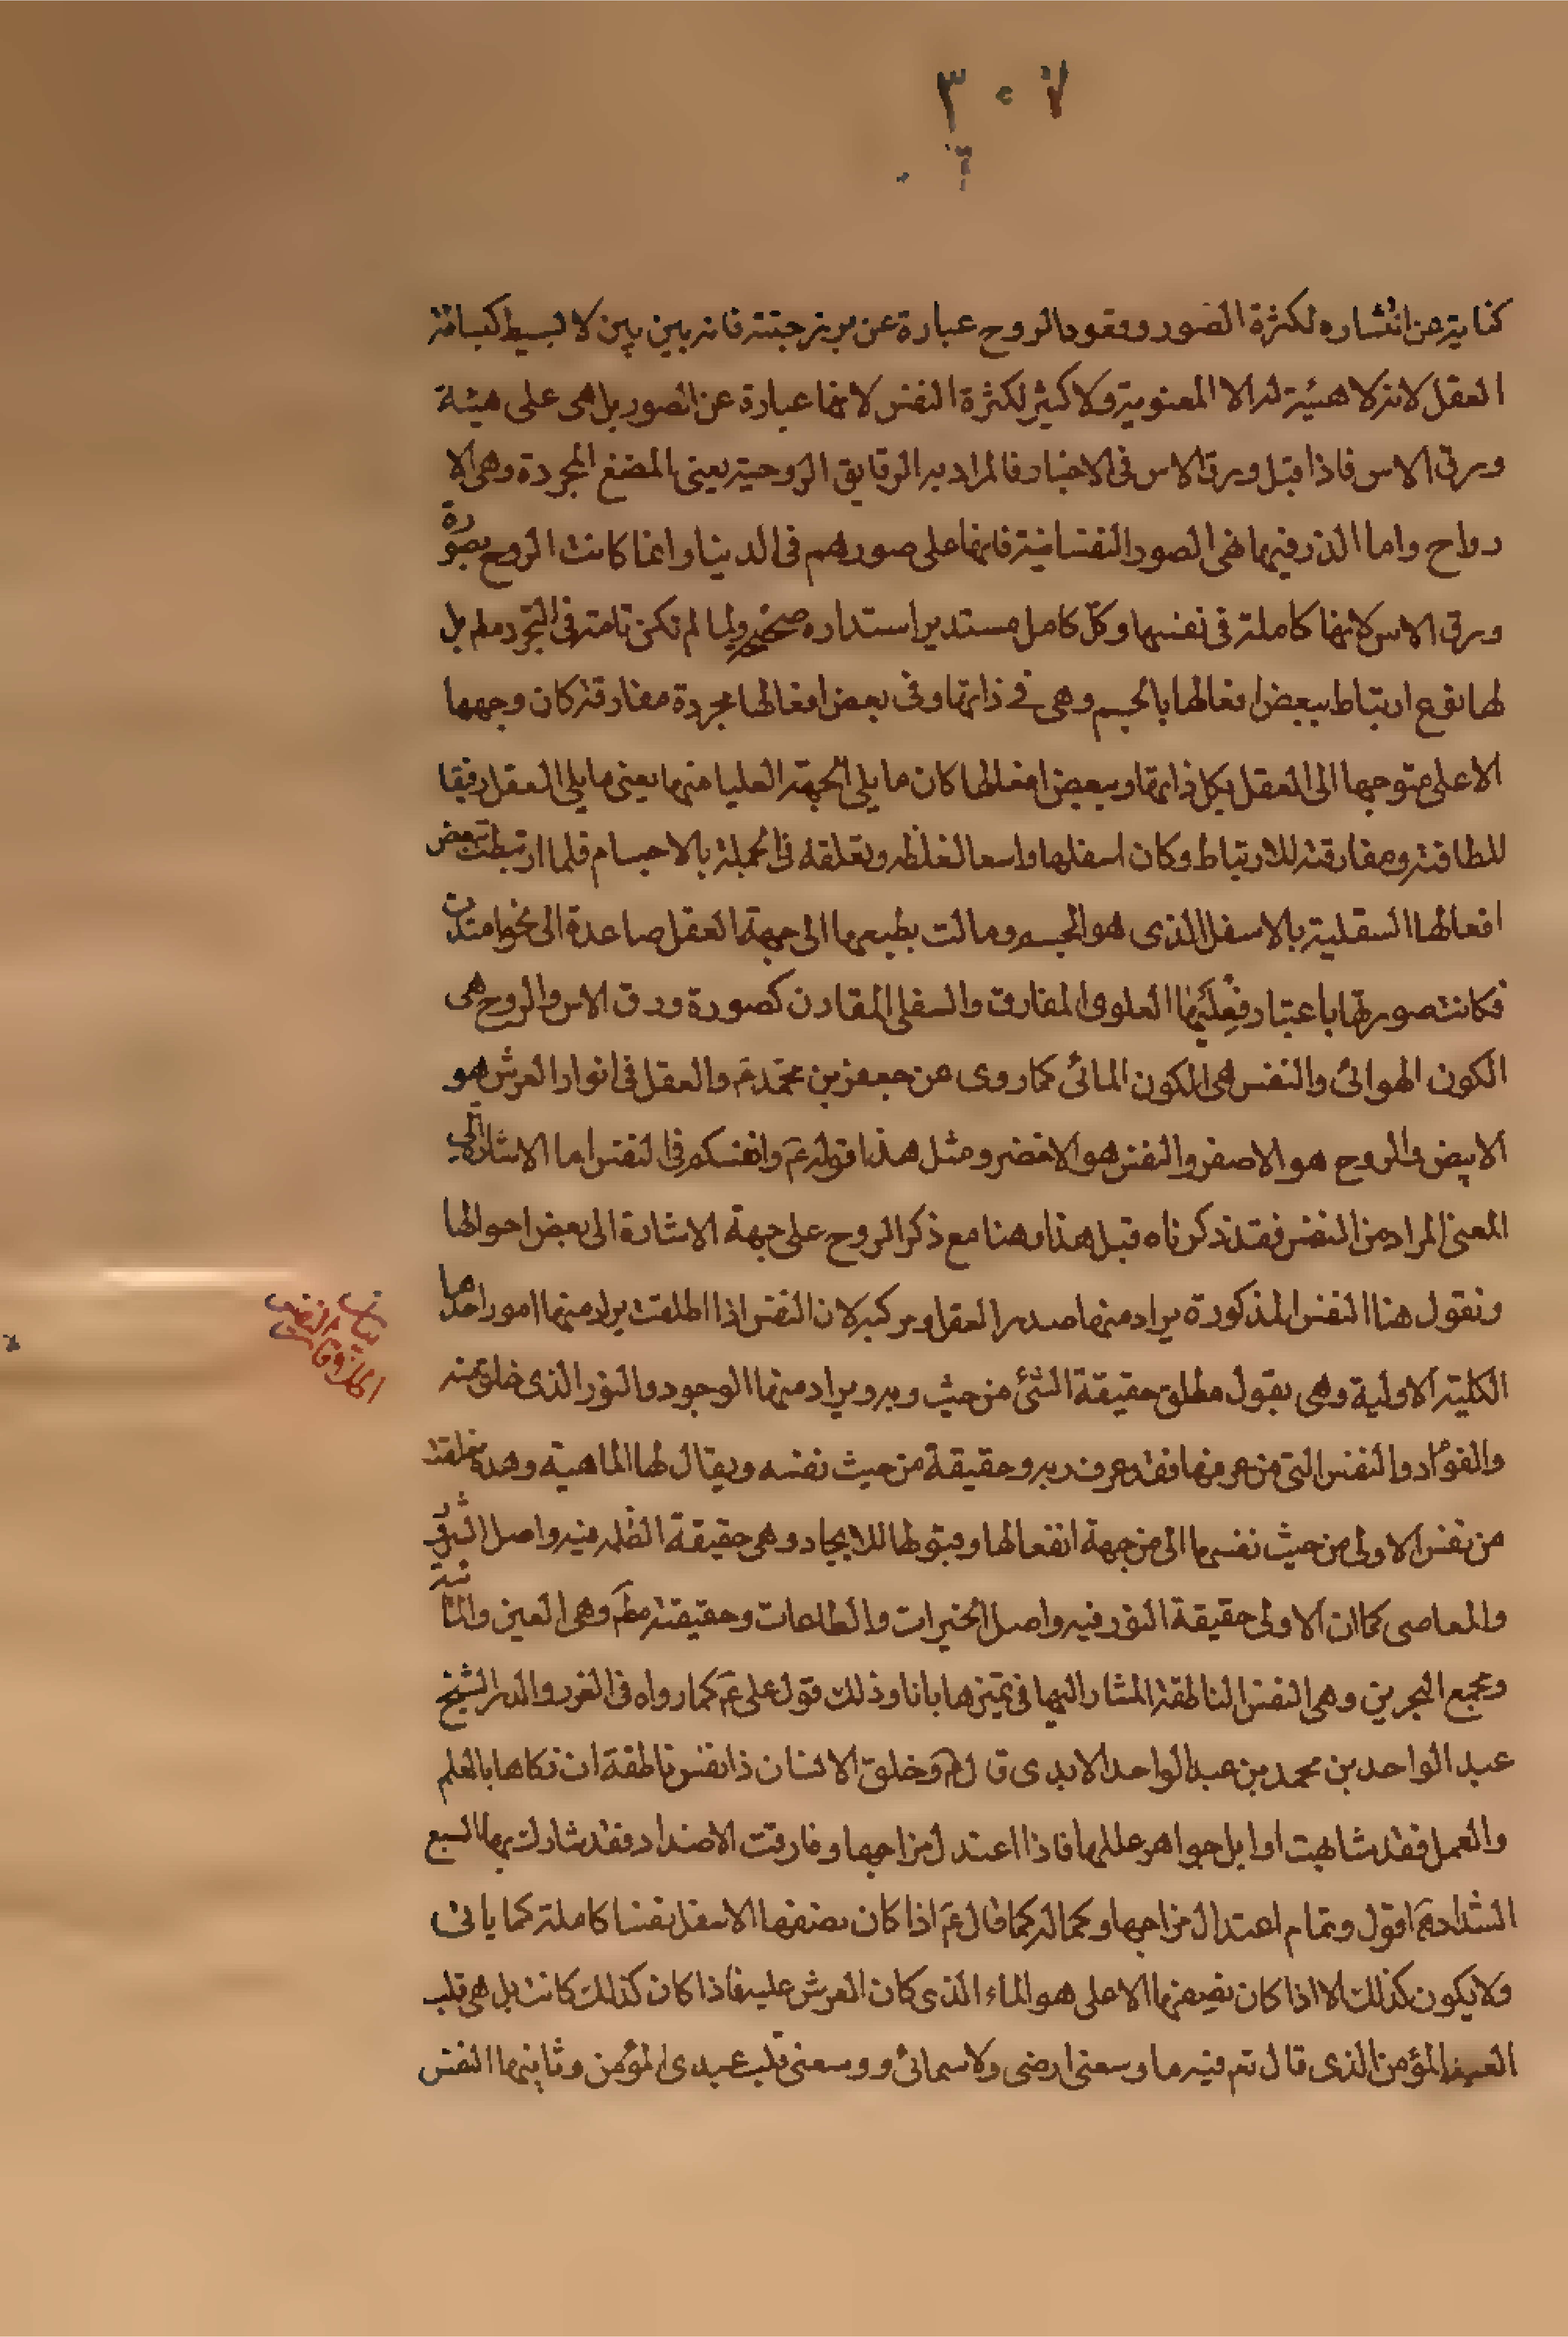 ٣٠٧
كناية عن انتشاره لكثرة الصور وبقوله الروح عبارة عن برزخيته فانه بين بين لا بسيط كبساطة
العقل لانه لا هيئة له الا المعنوية ولا كثير لكثرة النفس لانها عبارة عن الصور بل هى على هيئة
ورق الاس فاذا قيل ورق الاس فى الاخبار فالمراد به الرقايق الروحية يعنى المضغ المجردة وهى الا
رواح واما الذر فيهما فهى الصور النفسانية فانها على صورهم فى الدنيا وانما كانت الروح بصورة
ورق الاس لانها كاملة فى نفسها وكل كامل مستدير استداره صحيحه ولما لم تكن تامة فى التجرد مط بل
لها نوع ارتباط ببعض افعالها بالجسم وهى فى ذاتها وفى بعض افعالها مجردة مفارقة كان وجهها
الاعلى متوجها الى العقل بكل ذاتها وببعض افعالها كان ما يلى الجهة العليا منها يعنى ما يلى العقل رقيقا
للطافته ومفارقته للارتباط وكان اسفلها واسعا لغلظه وتعلقه فى الجملة بالاجسام فلما ارتبطت بعض
افعالها السفلية بالاسفل الذى هو الجسم ومالت بطبعها الى جهة العقل صاعدة الى نحوا متدت
فكانت صورتها باعتبار فعليها العلوى المفارق والسفلى المقارن كصورة ورق الاس والروح هى
الكون الهوائى والنفس هى الكون المائى كما روى عن جعفر بن محمد ع والعقل فى انوار العرش هو
الابيض والروح هو الاصفر والنفس هو الاخضر ومثل هذا قوله ع وانفسكم فى النفس اما الاشارة الى
المعنى المراد من النفس فقد ذكرناه قبل هذا وهنا مع ذكر الروح على جهة الاشارة الى بعض احوالها
ونقول هنا النفس المذكورة يراد منها صدر العقل ومركبه لان النفس اذا اطلقت يراد منها امور احدها
الكلية الاولية وهى بقول مطلق حقيقة الشئ من حيث ربه ويراد منها الوجود والنور الذى خلق منه
والفؤاد والنفس التى من عرفها فقد عرف ربه وحقيقة من حيث نفسه ويقال لها الماهية وهذه خلقت
من نفس الاولى من حيث نفسها اى من جهة انفعالها وقبولها للايجاد وهى حقيقة الظلمة فيه واصل الشرور
والمعاصى كما ان الاولى حقيقة النور فيه واصل الخيرات والطاعات وحقيقته مط وهى العين والثانية
ومجمع البحرين وهى النفس الناطقة المشار اليها فى تميزها بانا وذلك قول على ع كما رواه فى الغرر والدرر الشيخ
عبد الواحد بن محمد بن عبد الواحد الامدى قال ع وخلق الانسان ذا نفس ناطقة ان زكاها بالعلم
والعمل فقد شابهت اوايل جواهر عللها فاذا اعتدل مزاجها وفارقت الاضداد فقد شارك بها السبع
الشداد ه اقول وتمام اعتدال مزاجها وكماله كما قال ع اذا كان نصفها الاسفل نفسا كاملة كما ياتى
ولا يكون كذلك الا اذا كان نصفها الاعلى هو الماء الذى كان العرش عليه فاذا كان كذلك كانت بل هى قلب
العبد المؤمن الذى قال تع فيه ما وسعنى ارضى ولا سمائى ووسعنى قلب عبدى المؤمن وثانيها النفس
بيان النفس